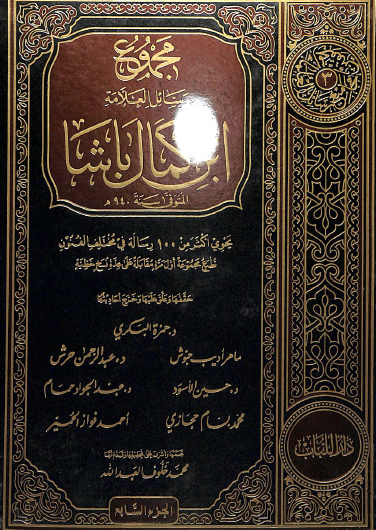 مجموع
رسائل العلامة
ابن كمال باشا
المتوفى سنة ٩٤٠ هـ
يحوي أكثر من ١٠٠ رسالة في مختلف الفنون
تطبع مجموعة أول مرة مقابلة على عدة نسخ خطية
حققها وعلق عليها وخرج أحاديثها
د. حمزة البكري
ماهر أديب حبوش
د. عبد الرحمن حرش
د. حسين الأسود
د. عبد الجواد حمام
محمد بسام حجازي
أحمد فواز الحمير
محمد خلوف العبد الله
الجزء السابع
٣
دار اللباب